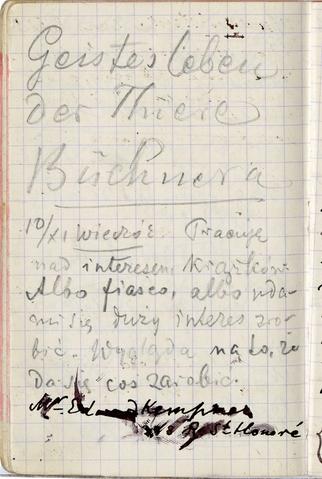 Geistesleben
der Thiere
Büchnera
10/XI wieczór. Pracuję
nad interesem książków.
Albo fiasco, albo uda
mi się duży interes zro-
bić. Wygląda na to, że
da się coś zarobić.
Mr Edward Kempner
R. St Honoré